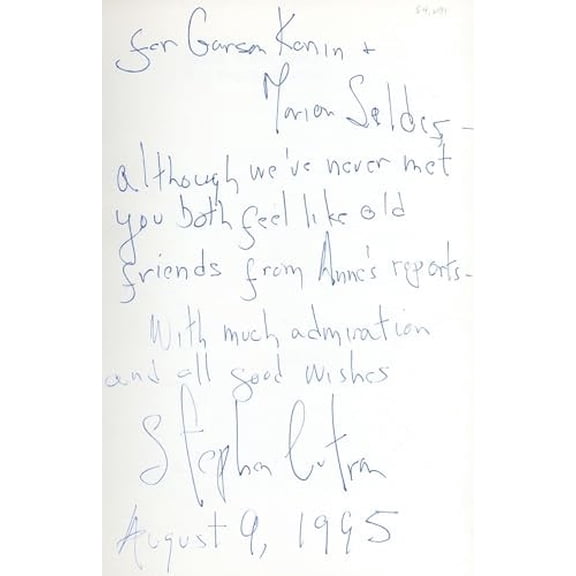 for Garson Kanin +
Marian Seldes -
although we've never met
you both feel like old
friends from Anne's reports -
With much admiration
and all good wishes
Stephen
August 9, 1995